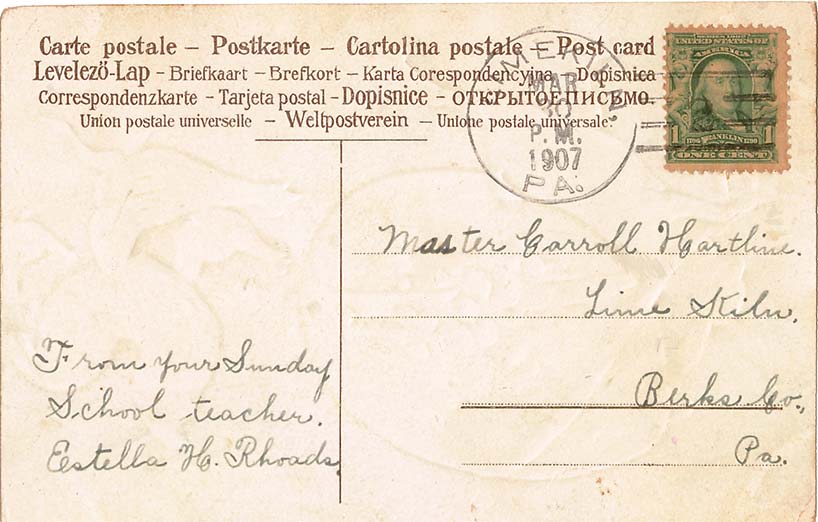 Carte postale – Postkarte – Cartolina postale – Post card
Levelező-Lap – Briefkaart – Brefkort – Karta Corespondencyjna – Dopisnica
Correspondenzkarte – Tarjeta postal – Dopisnice – ОТКРЫТОЕ ПИСЬМО.
Union postale universelle – Weltpostverein – Unione postale universale.
MAR
30
P.M.
1907
PA.
SERIES 1902
UNITED STATES OF
AMERICA
1 FRANKLIN 1
1706 1790
ONE CENT
Master Carroll Hartline.
Lime Kiln,
Berks Co.,
Pa.
From your Sunday
School teacher.
Estella H. Rhoads.